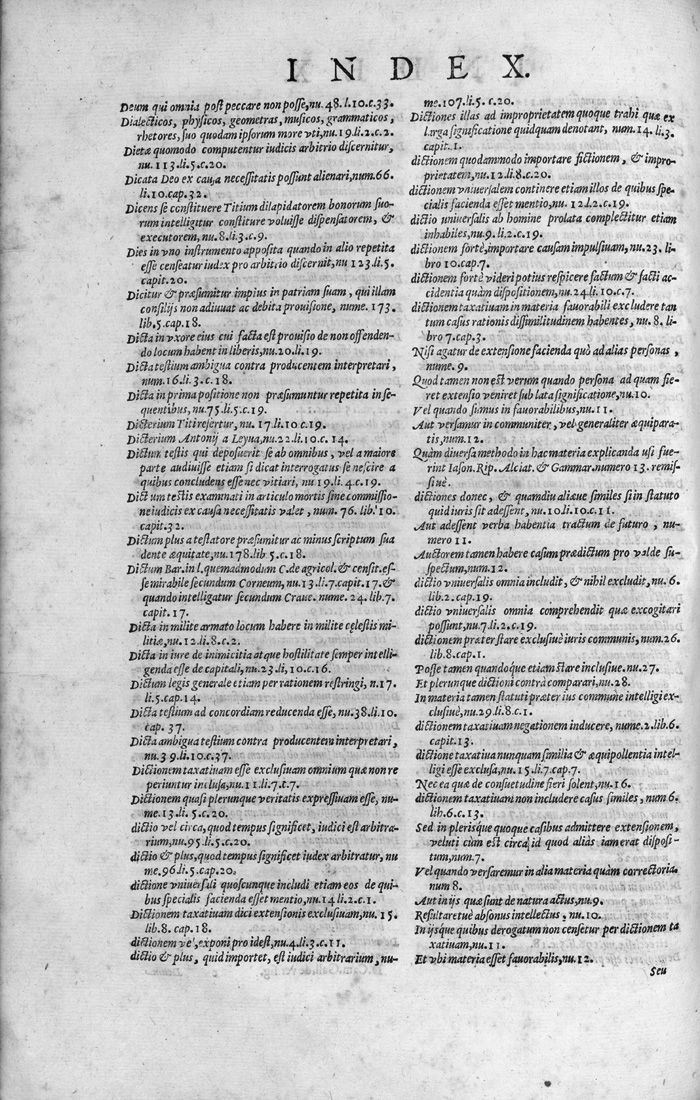 INDEX.
Deum qui omnia post peccare non posse, nu. 48. l. 10. c. 33.
Dialecticos, physicos, geometras, musicos, grammaticos,
rhetores, suo quodam ipsorum more vti, nu. 19. li. 2. c. 2.
Dietæ quomodo computentur iudicis arbitrio discernitur,
nu. 113. li. 5. c. 20.
Dicata Deo ex causa necessitatis possunt alienari, num. 66.
li. 10. cap. 32.
Dicens se constituere Titium dilapidatorem bonorum suo-
rum intelligitur constiture voluisse dispensatorem, &
executorem, nu. 8. li. 3. c. 9.
Dies in vno instrumento apposita quando in alio repetita
esse censeatur iudex pro arbitrio discernit, nu 123. li. 5.
capit. 20.
Dicitur & præsumitur impius in patriam suam, qui illam
consilijs non adiuuat ac debita prouisione, nume. 173.
lib. 5. cap. 18.
Dicta in vxore eius cui facta est prouisio de non offenden-
do locum habent in liberis, nu. 20. li. 19.
Dicta testium ambigua contra producentem interpretari,
num. 16. li. 3. c. 18.
Dicta in prima positione non præsumuntur repetita in se-
quentibus, nu. 75. li. 5. c. 19.
Dicterium Titi resertur, nu. 17. li. 10. c. 19.
Dicterium Antonij a Leyua, nu. 22. li. 10. c. 14.
Dictum testis qui deposuerit se ab omnibus, vel a maiore
parte audiuisse etiam si dicat interrogatus se nescire a
quibus concludens esse nec vitiari, nu. 19. li. 4. c. 19.
Dictum testis examinati in articulo mortis sine commissio-
ne iudicis ex causa necessitatis valet, num. 76. lib. 10.
capit. 32.
Dictum plus a testatore præsumitur ac minus scriptum sua
dente æquitate, nu. 178. lib 5. c. 18.
Dictum Bar. in l. quemadmodum C. de agricol. & censit. es-
se mirabile secundum Corneum, nu. 13. li. 7. capit. 17. &
quando intelligatur secundum Crauc. nume. 24. lib. 7.
capit. 17.
Dicta in milite armato locum habere in milite celestis mi-
litiæ, nu. 12. li. 8. c. 2.
Dicta in iure de inimicitia atque hostilitate semper intelli-
genda esse de capitali, nu. 23. li, 10. c. 16.
Dictum legis generale etiam per rationem restringi, n. 17.
li. 5. cap. 14.
Dicta testium ad concordiam reducenda esse, nu. 38. li. 10.
cap. 37.
Dicta ambigua testium contra producentem interpretari,
nu. 39. li. 10. c. 37.
Dictionem taxatiuam esse exclusiuam omnium quæ non re
periuntur inclusa, nu. 11. li. 7. t. 7.
Dictionem quasi plerunque veritatis expressiuam esse, nu-
me. 13. li. 5. c. 20.
dictio vel circa, quod tempus significet, iudici est arbitra-
rium, nu. 95. li. 5. c. 20.
dictio & plus, quod tempus significet iudex arbitratur, nu
me. 96. li. 5. cap. 20.
dictione vniuersali quoscunque includi etiam eos de qui-
bus specialis facienda esset mentio, nu. 14. li. 2. c. 1.
Dictionem taxatiuam dici extensionis exclusiuam, nu. 15.
lib. 8. cap. 18.
dictionem ve, exponi pro idest, nu. 4. li. 3. c. 11.
dictio & plus, quid importet, est iudici arbitrarium, nu-
me. 107. li. 5. c. 20.
Dictiones illas ad improprietatem quoque trahi quæ ex
larga significatione quidquam denotant, num. 14. li. 3.
capit. 1.
dictionem quodammodo importare fictionem, & impro-
prietatem, nu. 12. li. 8. c. 20.
dictionem vniuersalem continere etiam illos de quibus spe-
cialis facienda esset mentio, nu. 12. l. 2. c. 19.
dictio uniuersalis ab homine prolata complectitur etiam
inhabiles, nu. 9. li. 2. c. 19.
dictionem fortè, importare causam impulsiuam, nu. 23. li-
bro 10. cap. 7.
dictionem fortè videri potius respicere factum & facti ac-
cidentia quàm dispositionem, nu. 24. li. 10. c. 7.
dictionem taxatiuam in materia fauorabili excludere tan
tum casus rationis dissimilitudinem habentes, nu. 8. li-
bro 7. cap. 3.
Nisi agatur de extensione facienda quò ad alias personas,
nume. 9.
Quod tamen non est verum quando persona ad quam fie-
ret extensio veniret sub lata significatione, nu. 10.
Vel quando simus in fauorabilibus, nu. 11.
Aut versamur in communiter, vel generaliter æquipara-
tis, num. 12.
Quàm diuersa methodo in hac materia explicanda usi fue-
rint Iason. Rip. Alciat. & Gammar. numero 13. remis-
siuè.
dictiones donec, & quandiu aliæue similes si in statuto
quid iuris sit adessent, nu. 10. li. 10. c. 11.
Aut adessent verba habentia tractum de futuro, nu-
mero 11.
Auctorem tamen habere casum prædictum pro valde su-
spectum, num. 12.
dictio vniuersalis omnia includit, & nihil excludit, nu. 6.
lib. 2. cap. 19.
dictio vniuersalis omnia comprehendit quæ excogitari
possunt, nu. 7. li. 2. c. 19.
dictionem præter stare exclusiuè iuris communis, num. 26.
lib. 8. cap. 1.
Posse tamen quandoque etiam stare inclusiue. nu. 27.
Et plerunque dictioni contrà comparari, nu. 28.
In materia tamen statuti præter ius commune intelligi ex-
clusiuè, nu. 29. li. 8. c. 1.
dictionem taxatiuam negationem inducere, nume. 2. lib. 6.
capit. 13.
dictione taxatiua nunquam similia & æquipollentia intel-
ligi esse exclusa, nu. 15. li. 7. cap. 7.
Nec ea quæ de consuetudine fieri solent, nu. 16.
dictionem taxatiuam non includere casus similes, num 6.
lib. 6. c. 13.
Sed in plerisque quoque casibus admittere extensionem,
veluti cùm est circa id quod aliàs iam erat disposi-
tum, num. 7.
Vel quando versaremur in alia materia quàm correctoria.
num 8.
Aut in ijs quæ sint de natura actus, nu. 9.
Resultaretuè absonus intellectus, nu. 10.
In ijsque quibus derogatum non censetur per dictionem ta
xatiuam, nu. 11.
Et vbi materia esset fauorabilis, nu. 12.
Seu